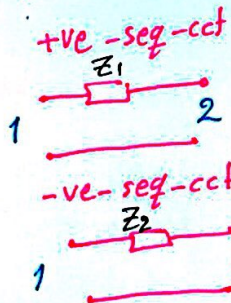 +ve-seq-cct
Z1
1 2
-ve-seq-cct
Z2
1